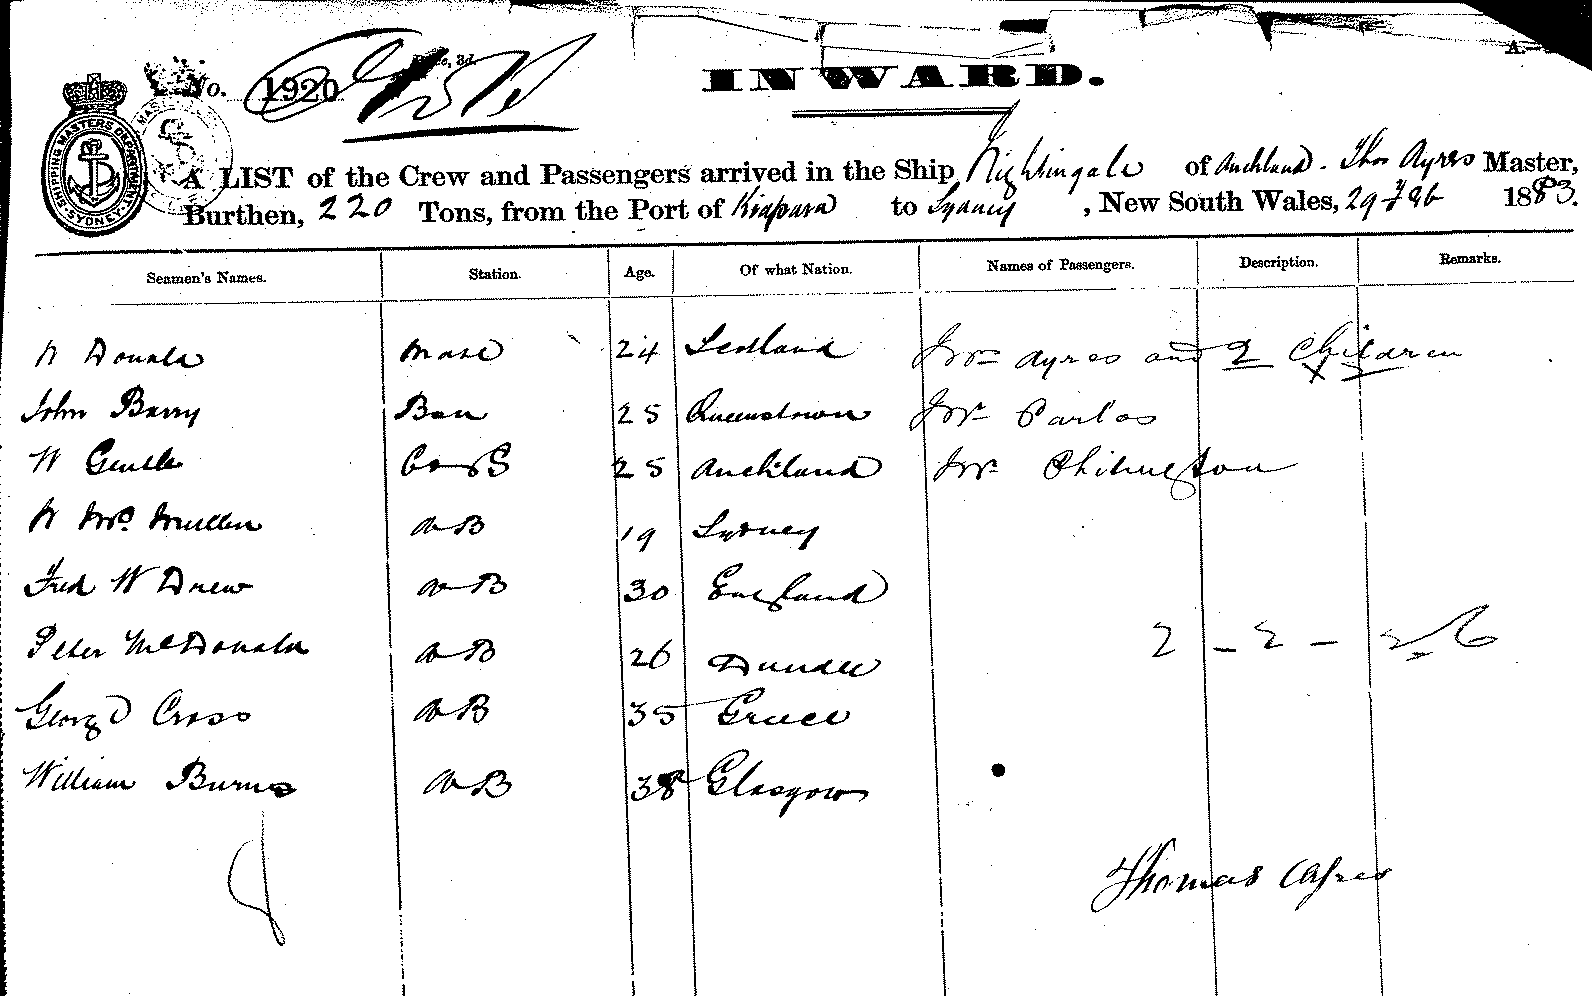 INWARD.
No. 1920
SHIPPING MASTERS DEPARTMENT SYDNEY
A LIST of the Crew and Passengers arrived in the Ship Nightingale of Auckland - Thos Ayres Master,
Burthen, 220 Tons, from the Port of Kiapara to Sydney, New South Wales, 29 Feb 1883.
Seamen's Names. Station. Age. Of what Nation. Names of Passengers. Description. Remarks.
W Donald Mate 24 Scotland Mrs Ayres and 2 Children
John Barry Bsn 25 Queenstown Mr
W Gentle 25 Auckland Mr
W McMullen AB 19 Sydney
Fred W Drew AB 30 England
Peter McDonald AB 26 Dundee
2 - 2 -
George Cross AB 35 Greece
William Burns AB 38 Glasgow
Thomas Ayres